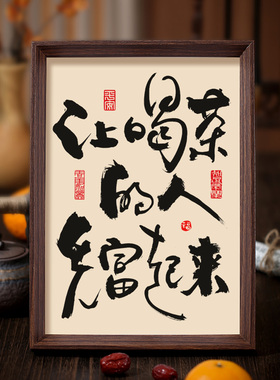 让喝茶
的人
先富起来